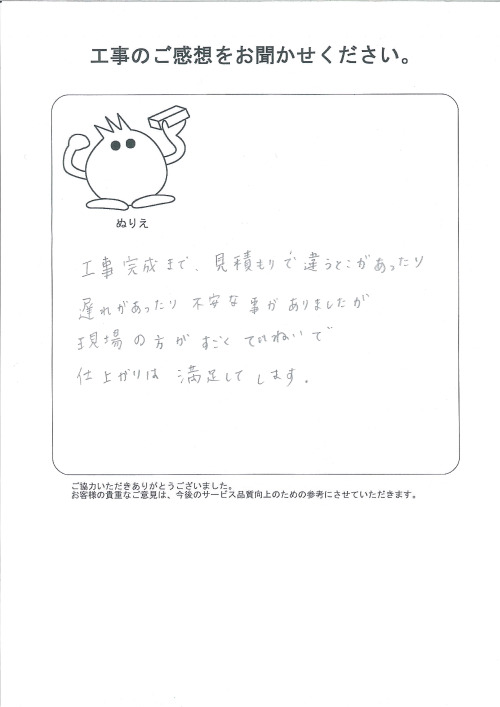 工事のご感想をお聞かせください。
ぬりえ
工事完成まで、見積もりで違うとこがあったり
遅れがあったり 不安な事がありましたが
現場の方が すごく ていねいで
仕上がりは 満足して します.
ご協力いただきありがとうございました。
お客様の貴重なご意見は、今後のサービス品質向上のための参考にさせていただきます。